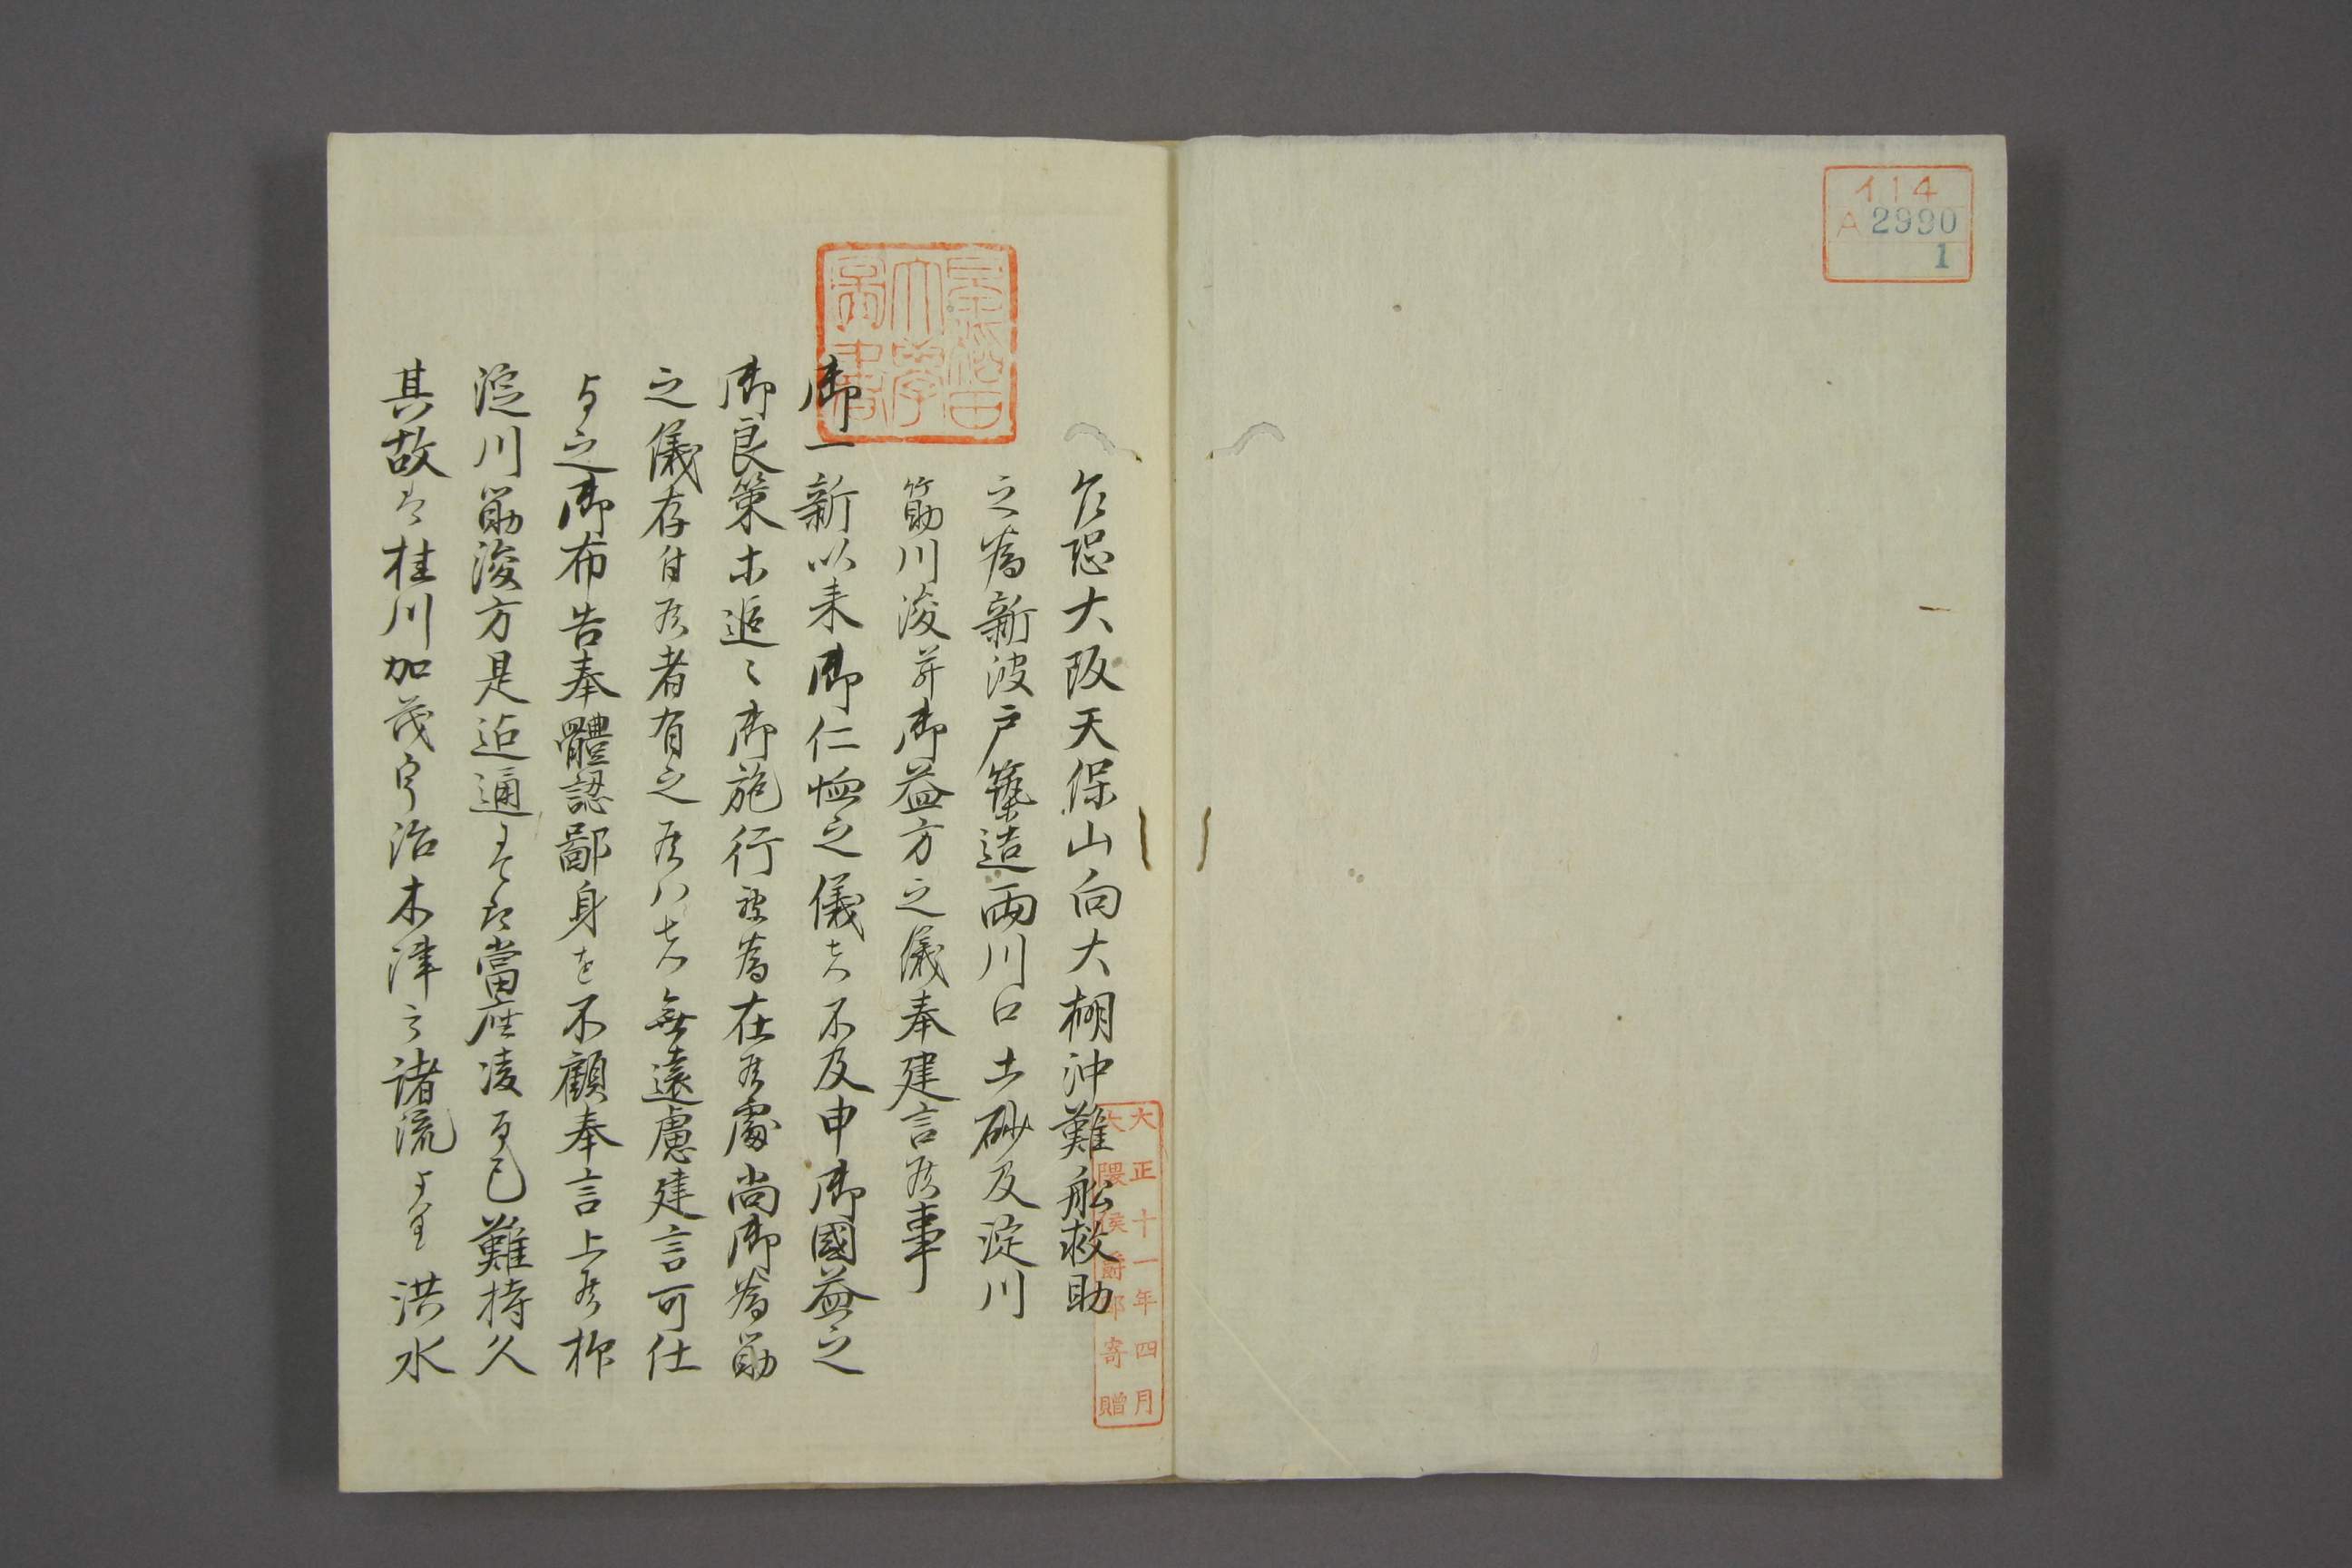 イ14
A 2990
1
乍恐大阪天保山向大棚沖難船救助
之為新波戸築造両川口土砂及淀川
筋川浚并御益方之儀奉建言候事
御一新以来御仁恤之儀者不及申御國益之
御良策木追々御施行被為在候處尚御為筋
之儀存付候者有之候ハヽ無遠慮建言可仕
与之御布告奉體認鄙身を不顧奉言上候抑
淀川筋浚方是迠通ニ而者當座凌而已難持久
其故者桂川加茂宇治木津之諸流ゟ洪水
早稲田大學圖書
大正十一年四月
大隈侯爵郎寄贈